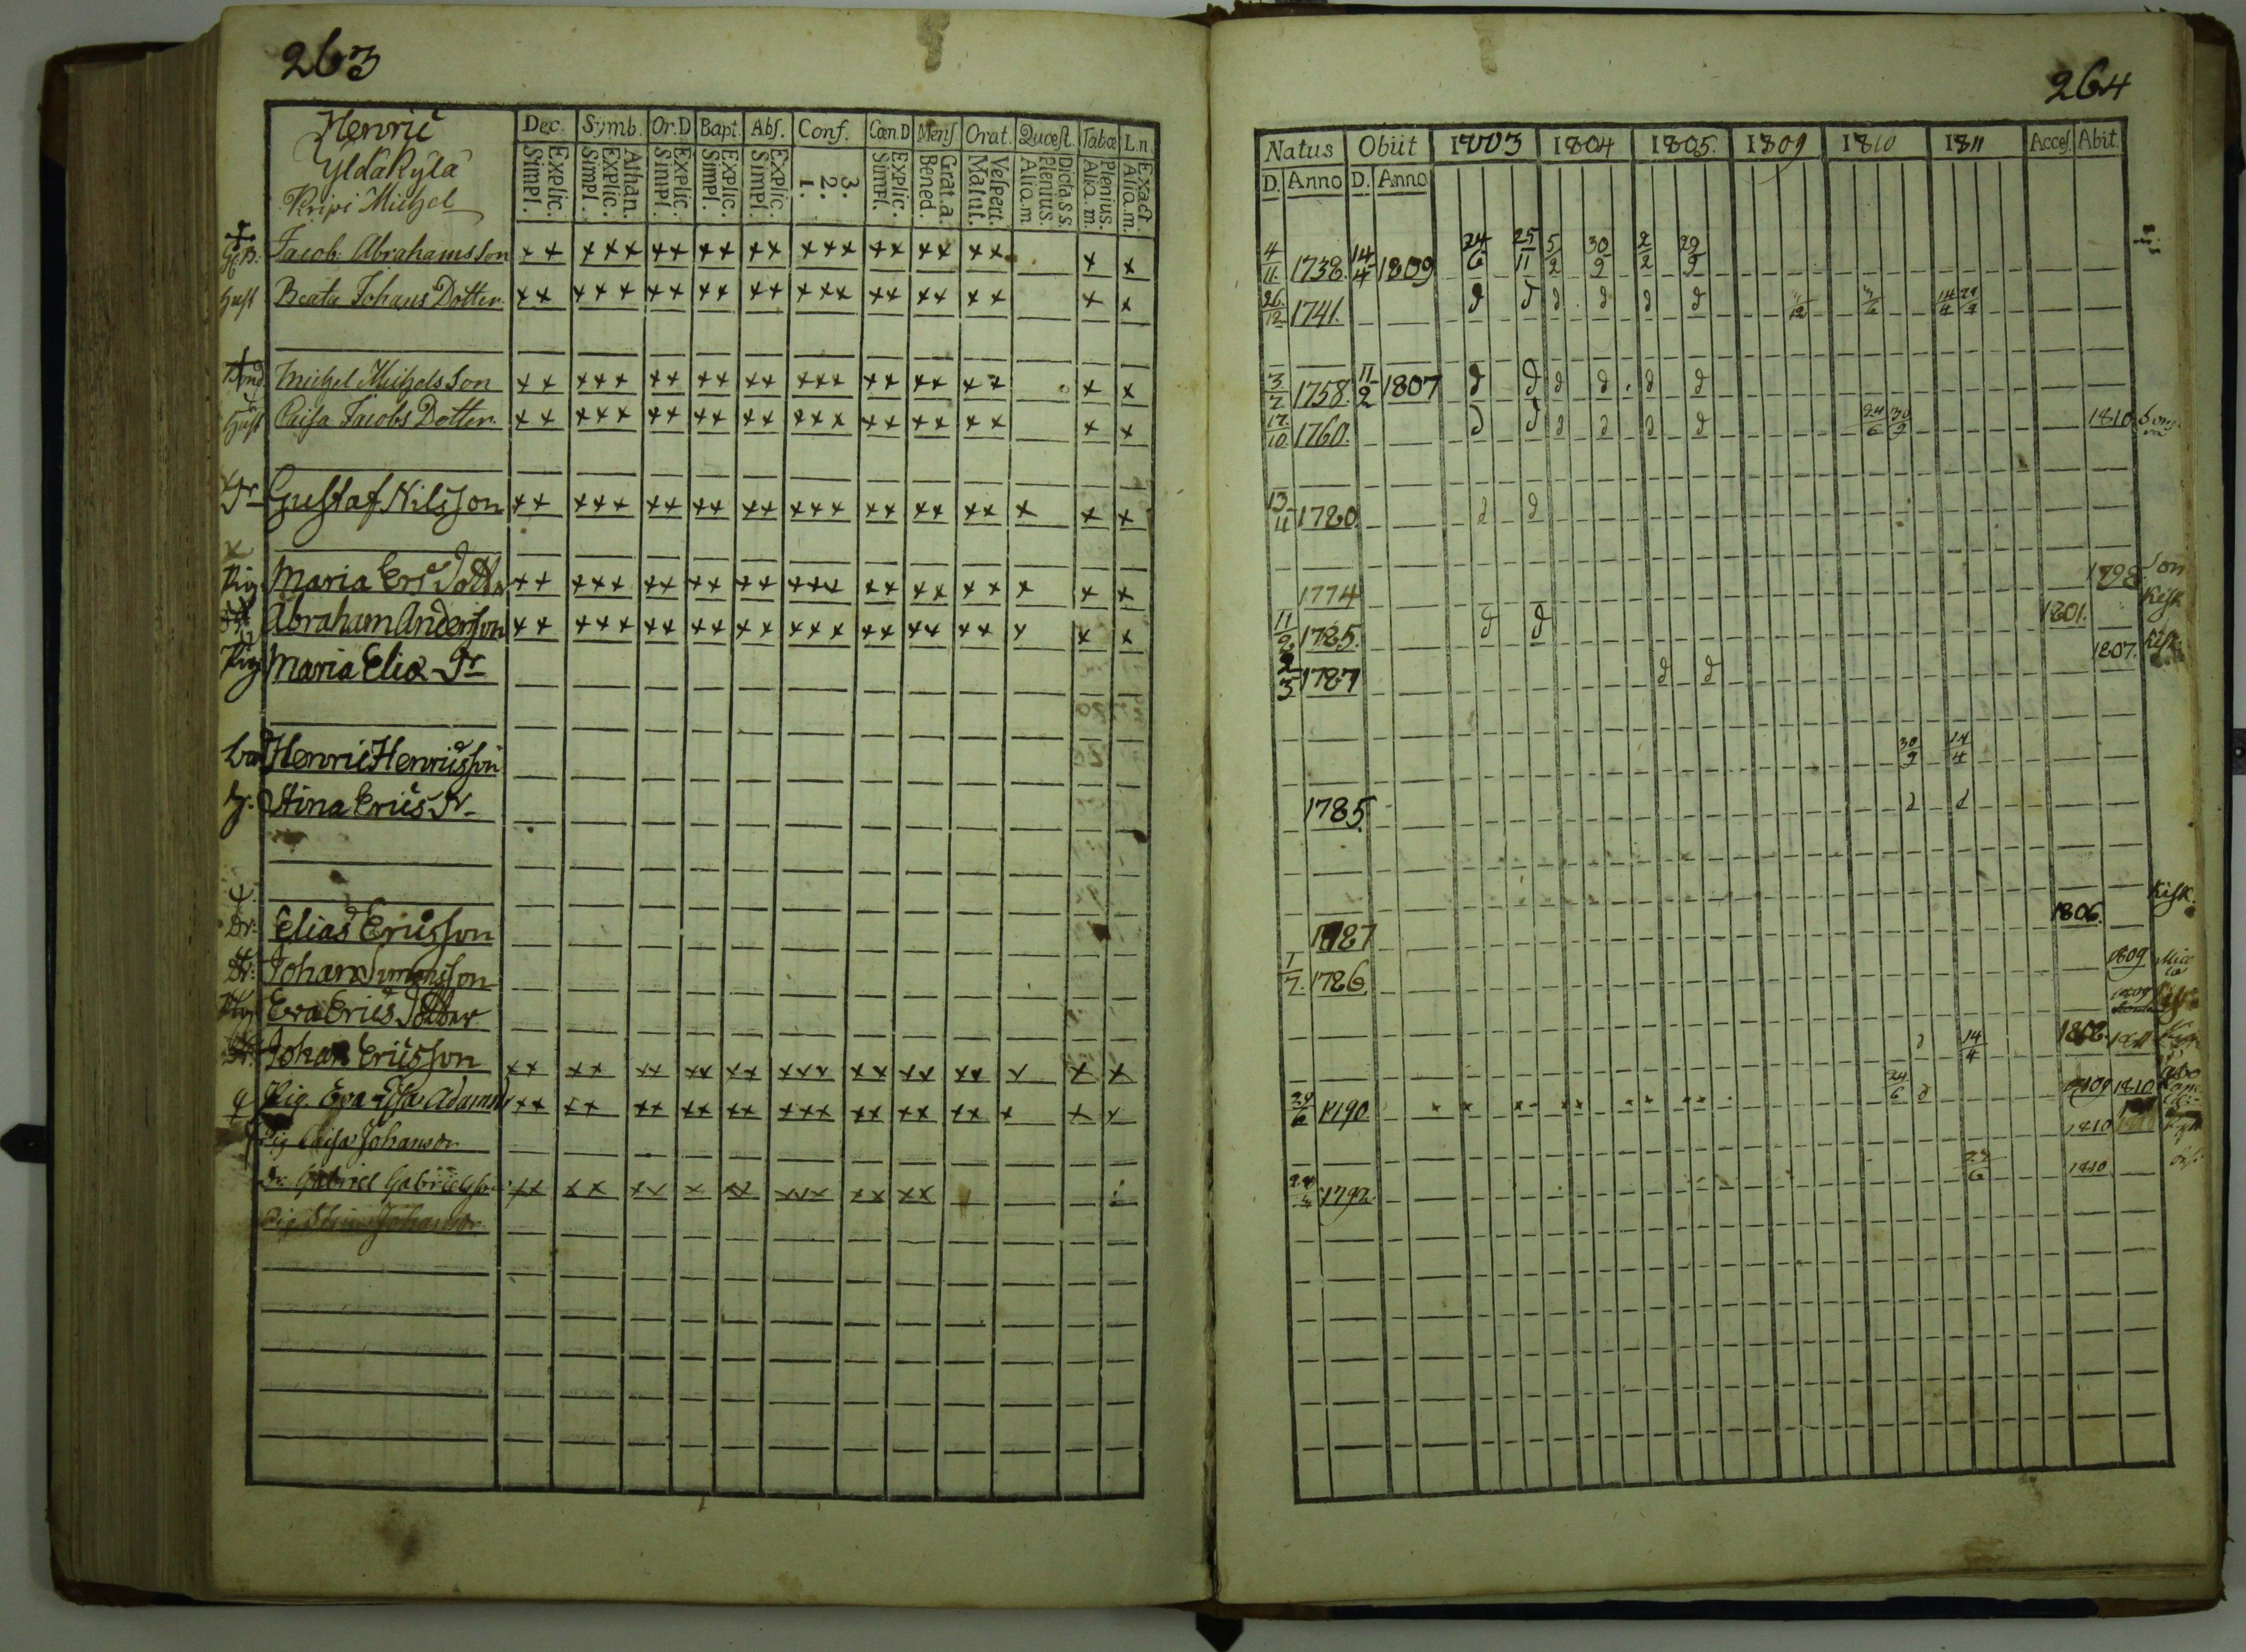 263
Henric
Yldäkylä
Kripi Michel
Dec. Symb. Or.D Bapt. Abs. Conf. Cœn.D Mens Orat. Quœst. Tabœ L.n.
Explic. Simpl. Athan. Explic. Simpl. Explic. Simpl. Explic. Simpl. Explic. Simpl. 3. 2. 1. Explic. Simpl. Grat.a. Bened. Vespert. Matut. Dicta.s.s. Plenius. Aliq.m. Plenius. Aliq.m. Exact. Aliq.m.
Jacob Abrahamsson
Hust Beata Johans Dotter
Bond Michel Michelsson
Hust Caisa Jacobs Dotter
Gustaf Nilsson
Pig Maria Ers Dotter
Abraham Andersson
Pig Maria Elia Dr
Henric Henricsson
h. Stina Erics Dr
Dr. Elias Ericsson
Dr. Johan Simonsson
Eva Erics Dotter
Dr. Johan Ericsson
Pig. Eva Lisa Adamsdr
Pig Caisa Johansdr
Dr. Gabriel Gabrielsson
Pig Stina Johansdr
264
Natus Obiit 1803 1804 1805. 1809 1810 1811 Acces. Abit.
D. Anno D. Anno
4/11 1738. 14/4 1809 24/6 25/11 5/2 30/9 2/2 29/9
26/12 1741. d d d d d d 14/4 29/9
3/7 1758. 11/2 1807 d d d d d d
17/10 1760. d d d d d d 24/6 30/9 1810
13/11 1780. d d
1774 1798
11/2 1785. d d 1801. Kisk
2/3 1787 d d 1807. Kisk
30/9 14/4
1785. d d
1787 1806. Kisk.
1/7 1786. 1809
1809
d 14/4 1808 1811
29/6 1790. 24/6 d 1809 1810
1810
1792 1810